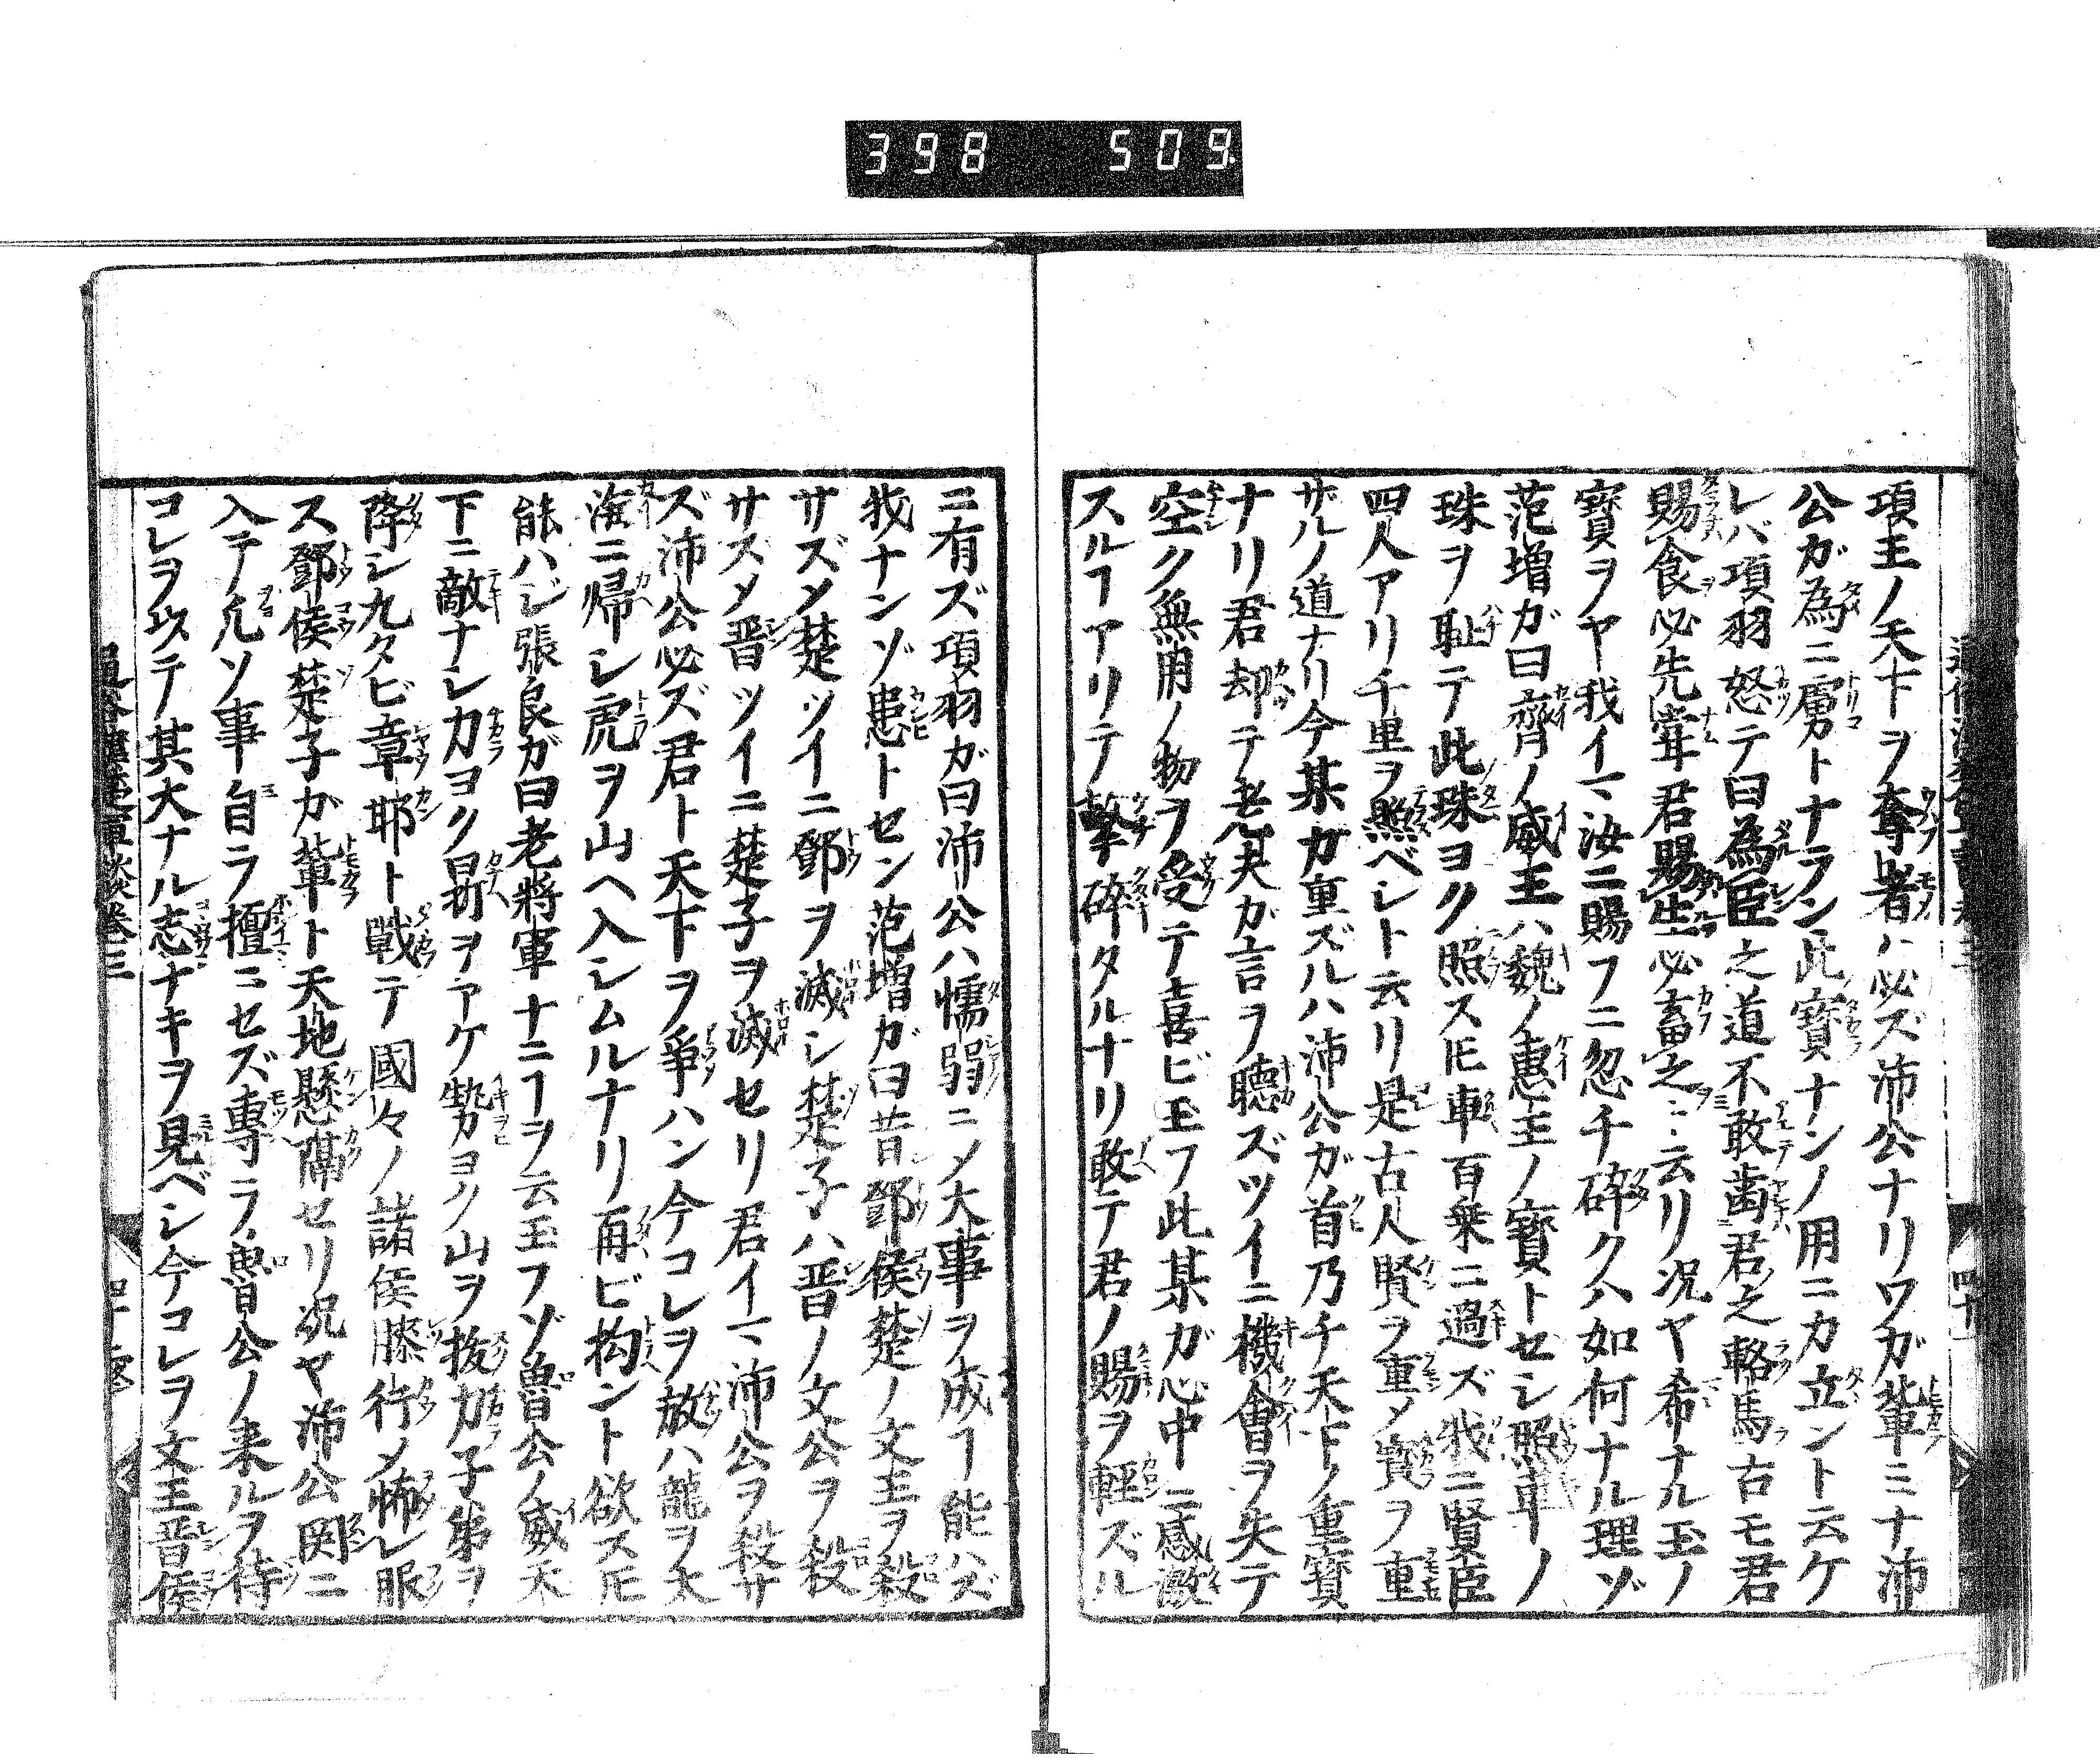 398 509
項王ノ天下ヲ奪者ハ必ズ沛公ナリワガ輩ミナ沛
公ガ為ニ虜トナラン此寳ナンノ用ニカ立ント云ケ
レバ項羽怒テ曰為臣之道不敢歯君之輅馬古モ君
賜食必先甞君賜生必畜之ト云リ况ヤ希ナル玉ノ
寳ヲヤ我イマ汝ニ賜フニ忽チ碎クハ如何ナル理ゾ
范増ガ曰齊ノ威王ハ魏ノ惠王ノ寳トセシ照車ノ
珠ヲ耻テ此珠ヨク照スヒ車百乗ニ過ズ我ニ賢臣
四人アリ千里ヲ照ベシト云リ是古人賢ヲ重メ寳ヲ重
ザルノ道ナリ今某カ重ズルハ沛公ガ首乃チ天下ノ重寳
ナリ君却テ老夫ガ言ヲ聴ズツイニ機會ヲ失テ
空ク無用ノ物ヲ受テ喜ビ玉フ此某ガ心中ニ感激
スルヿアリテ撃碎タルナリ敢テ君ノ賜ヲ輕ズル
ニ有ズ項羽ガ曰沛公ハ懦弱ニメ大事ヲ成ヿ能ハズ
我ナンゾ患トセン范増ガ曰昔鄧侯楚ノ文王ヲ殺
サズメ楚ツイニ鄧ヲ滅シ楚子ハ晋ノ文公ヲ殺
サズメ晋ツイニ楚子ヲ滅セリ君イマ沛公ヲ殺サ
ズ沛公必ズ君ト天下ヲ爭ハン今コレヲ放ハ龍ヲ大
海ニ帰シ虎ヲ山ヘ入シムルナリ再ビ拘ント欲スヒ
能ハジ張良ガ曰老將軍ナニヿヲ云玉フゾ魯公ノ威天
下ニ敵ナシ力ヨク鼎ヲアケ勢ヨク山ヲ抜加子弟ヲ
降シ九タビ章邯ト戰テ國々ノ諸侯膝行メ怖レ服
ス鄧侯楚子ガ輩ト天地懸隔セリ况ヤ沛公関ニ
入テ凡ソ事自ラ擅ニセズ專ラ魯公ノ来ルヲ待
コレヲ以テ其大ナル志ナキヲ見ベシ今コレヲ文王晋侯
通俗漢楚軍談卷三